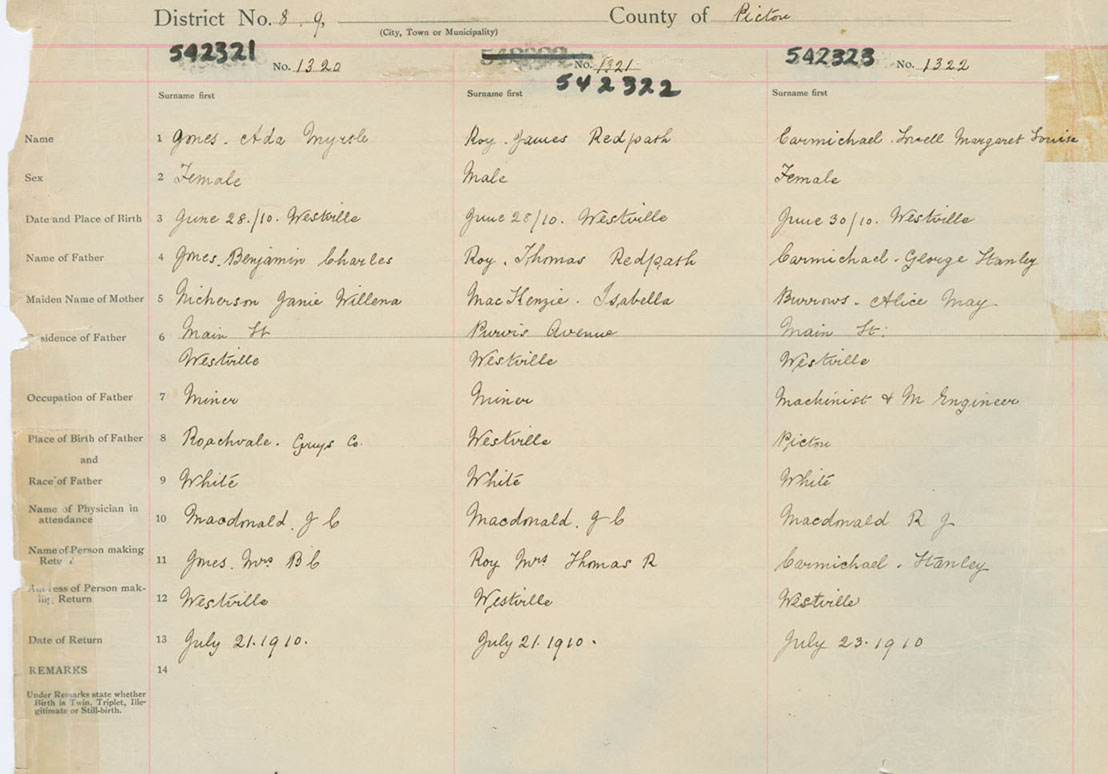 District No. 8.9. County of Pictou
(City, Town or Municipality)
542321 No. 1320 No. 1321 542322 542323 No. 1322
Surname first Surname first Surname first
Name 1 Jones. Ada Myrtle Roy. James Redpath Carmichael. Margaret Louise
Sex 2 Female Male Female
Date and Place of Birth 3 June 28./10. Westville June 28/10. Westville June 30/10. Westville
Name of Father 4 Jones. Benjamin Charles Roy. Thomas Redpath Carmichael. George Stanley
Maiden Name of Mother 5 Nickerson Janie Willena MacKenzie. Isabella Burrows. Alice May
sidence of Father 6 Main St Purvis Avenue Main St.
Westville Westville Westville
Occupation of Father 7 Miner Miner Machinist & M Engineer
Place of Birth of Father 8 Roachvale. Guys Co. Westville Pictou
and
Race of Father 9 White White White
Name of Physician in
attendance 10 Macdonald. J C Macdonald. J C Macdonald R J
Name of Person making
Retu 11 Jones. Mrs B C Roy Mrs Thomas R Carmichael. Stanley
Address of Person mak-
ing Return 12 Westville Westville Westville
Date of Return 13 July 21. 1910. July 21. 1910. July 23. 1910
REMARKS 14
Under Remarks state whether
Birth is Twin, Triplet, Ille-
gitimate or Still-birth.